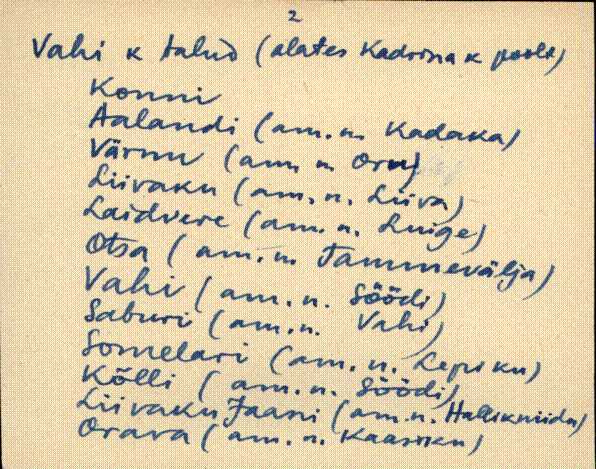 2
Vahi k talud (alates Kadrina k poolt)
Konni
Aalandi (am. n. Kadaka)
Värnu (am. n. Oru)
Liivaku (am. n. Liiva)
Laidvere (am. n. Luige)
Otsa (am. n. Tammevälja)
Vahi (am. n. Söödi)
Saburi (am. n. Vahi)
Somelari (am. n. Lepiku)
Kõlli (am. n. Söödi)
Liivaku Jaani (am. n. Hallikniidu)
Orava (am. n. Kaasiku)